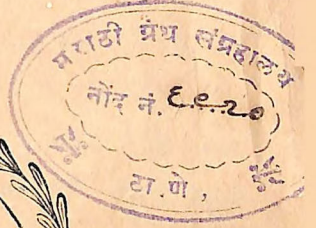 मराठी ग्रंथ संग्रहालय
नोंद नं. ६९२०
ठाणे,